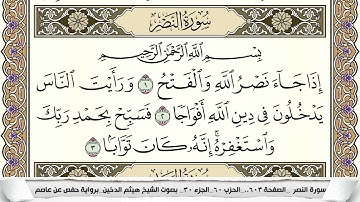 سُورَةُ النَّصْرِ
بِسْمِ اللَّهِ الرَّحْمَٰنِ الرَّحِيمِ
إِذَا جَاءَ نَصْرُ اللَّهِ وَالْفَتْحُ ١ وَرَأَيْتَ النَّاسَ
يَدْخُلُونَ فِي دِينِ اللَّهِ أَفْوَاجًا ٢ فَسَبِّحْ بِحَمْدِ رَبِّكَ
وَاسْتَغْفِرْهُ إِنَّهُ كَانَ تَوَّابًا ٣
سورة النصر _ الصفحة ٦٠٣ _ الحزب ٦٠ _ الجزء ٣٠ _ بصوت الشيخ هيثم الدخين _ برواية حفص عن عاصم